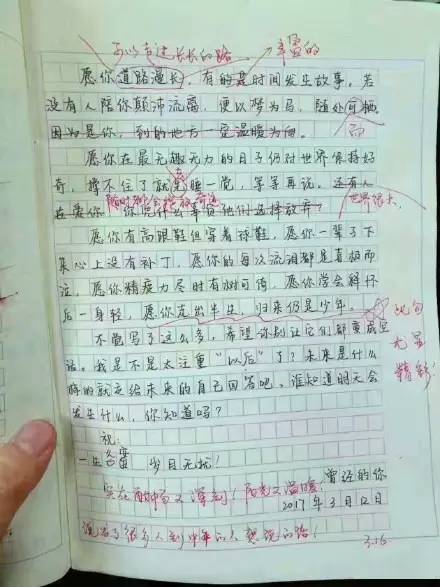 可以奔过长长的路
丰盈的
愿你道路漫长，有的是时间发生故事。若
没有人陪你颠沛流离，便以梦为马，随处可栖
因为是你，到的地方一定温暖为向。
而
愿你在最无趣无力的日子仍对世界保持好
奇，撑不住了就先睡一觉，等等再说，还有人
在爱你
世界很大
愿你有高跟鞋但穿着球鞋，愿你一辈子下
来心上没有补丁，愿你的每次流泪都是喜极而
泣，愿你精疲力尽时有树可倚，愿你学会释怀
后一身轻，愿你走出半生，归来仍是少年。
此句
尤显
精彩！
不觉写了这么多，希望你别让它们都变成空
话，我是不是太注重“以后”了？未来是什么
样的就交给未来的自己回答吧，谁知道明天会
发生什么，你知道吗？
祝：
一生 岁月无忧！
曾经的你
2017年3月12日
实在酣畅又深刻！阳光又温暖
说出了很多人到中年的人
3.16